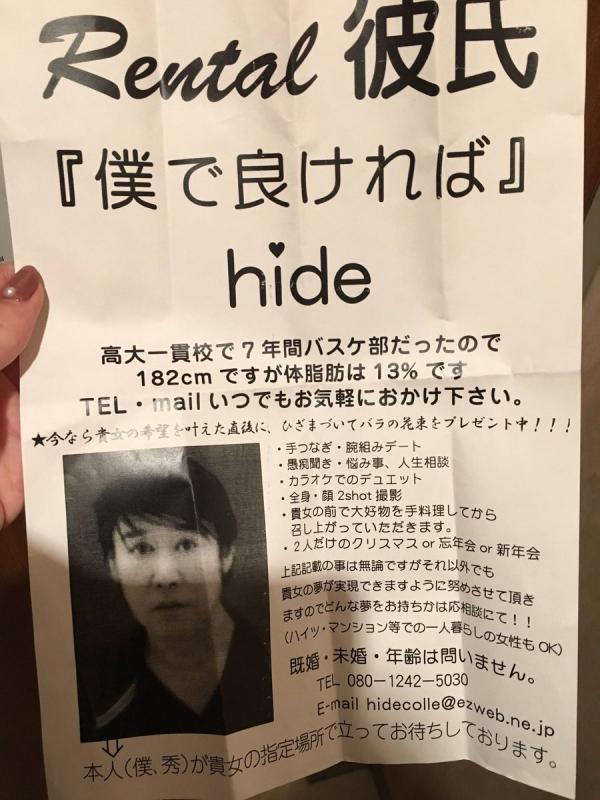 Rental 彼氏
『僕で良ければ』
hide
高大一貫校で7年間バスケ部だったので
182cmですが体脂肪は13%です
TEL・mailいつでもお気軽におかけ下さい。
★今なら貴女の希望を叶えた直後に、ひざまづいてバラの花束をプレゼント中!!!
・手つなぎ・腕組みデート
・愚痴聞き・悩み事、人生相談
・カラオケでのデュエット
・全身・顔2shot撮影
・貴女の前で大好物を手料理してから
召し上がっていただきます。
・2人だけのクリスマスor忘年会or新年会
上記記載の事は無論ですがそれ以外でも
貴女の夢が実現できますように努めさせて頂き
ますのでどんな夢をお持ちかは応相談にて!!
(ハイツ・マンション等での一人暮らしの女性もOK)
既婚・未婚・年齢は問いません。
TEL 080-1242-5030
E-mail hidecolle@ezweb.ne.jp
⇩
本人(僕、秀)が貴女の指定場所で立ってお待ちしております。